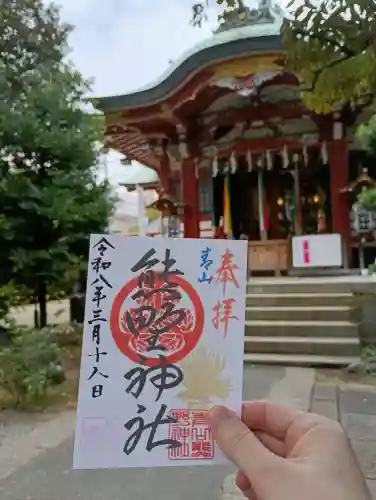 奉拝
青山
熊野神社
令和八年三月十八日